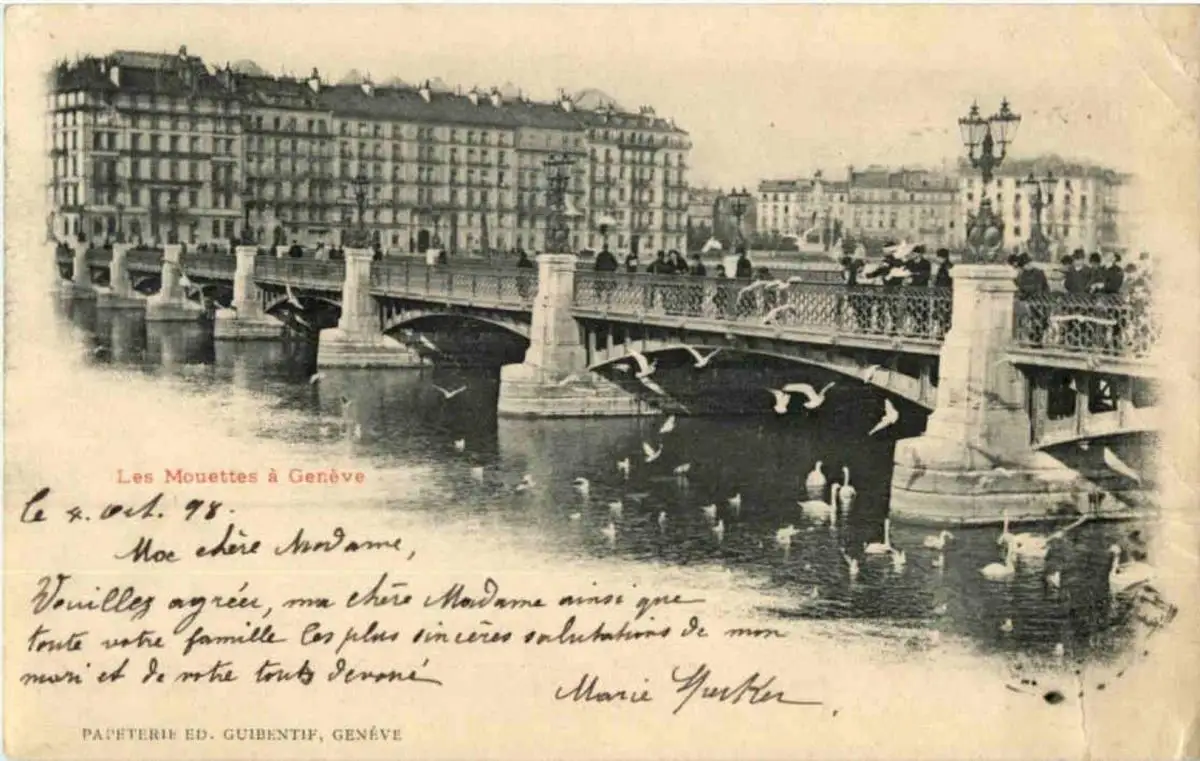 Les Mouettes à Genève
le 4. Oct. 98.
Ma chère Madame,
Veuillez agréer, ma chère Madame ainsi que
toute votre famille les plus sincères salutations de mon
mari et de votre toute dévoué
Marie
PAPETERIE ED. GUIBENTIF, GENÈVE